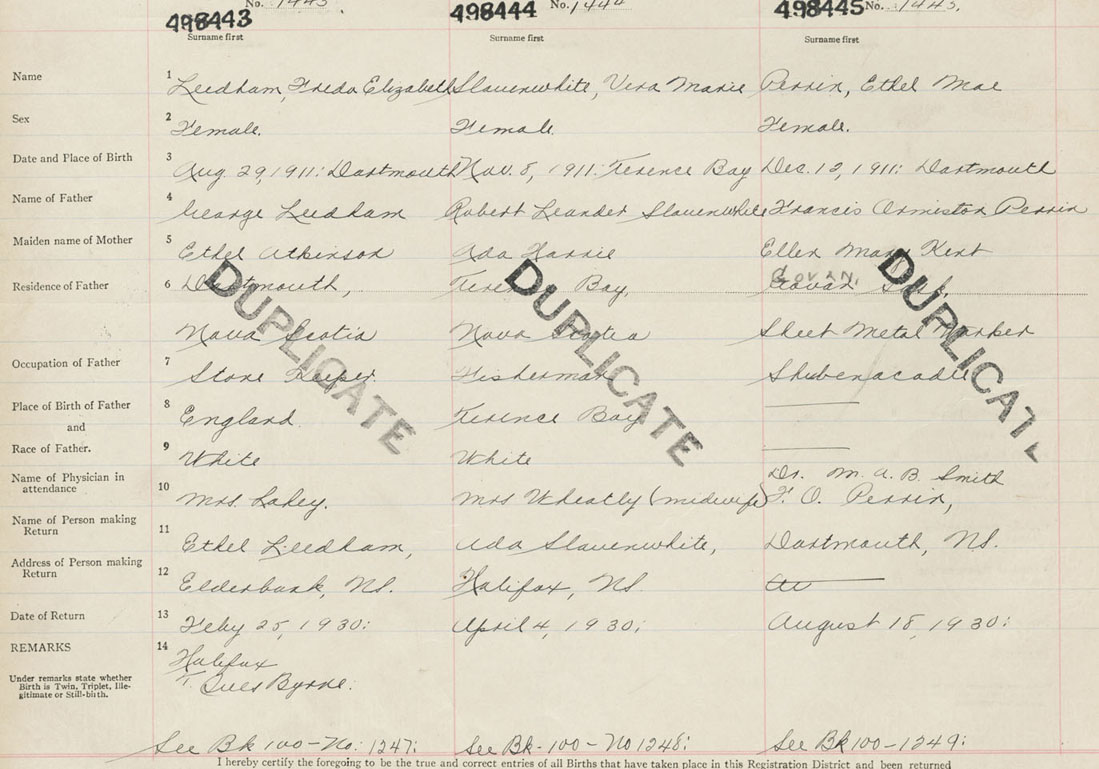 498443 No. 1443. 498444 No. 1444 498445 No. 1445.
Surname first Surname first Surname first
Name 1 Leedham, Freda Elizabeth Slauenwhite, Vera Marie Perrin, Ethel Mae
Sex 2 Female. Female Female.
Date and Place of Birth 3 Aug. 29, 1911: Dartmouth Nov. 8, 1911: Terence Bay Dec. 12, 1911: Dartmouth
Name of Father 4 George Leedham Robert Leander Slauenwhite Francis Ormiston Perrin
Maiden name of Mother 5 Ethel Atkinson Ada Harrie Ellen Mary Kent
GOVAN,
Residence of Father 6 Dartmouth, Terence Bay, Govan Sask.
Nova Scotia Nova Scotia Sheet Metal Worker
Occupation of Father 7 Store Keeper Fisherman Shubenacadie
Place of Birth of Father 8 England Terence Bay
and
Race of Father. 9 White White
Dr. M. A. B. Smith
Name of Physician in
attendance 10 Mrs. Lahey. Mrs Wheatly (midwife) F. O. Perrin,
Name of Person making
Return 11 Ethel Leedham, Ada Slauenwhite, Dartmouth, NS.
Address of Person making
Return 12 Elderbank, NS. Halifax, NS.
Date of Return 13 Feby 25, 1930: April 4, 1930: August 18, 1930:
REMARKS 14 Halifax
Under remarks state whether
Birth is Twin, Triplet, Ille-
gitimate or Still-birth.
Byrne.
DUPLICATE DUPLICATE DUPLICATE
See Bk 100-No: 1247: See Bk-100-No 1248: See Bk 100-1249:
I hereby certify the foregoing to be the true and correct entries of all Births that have taken place in this Registration District and been returned